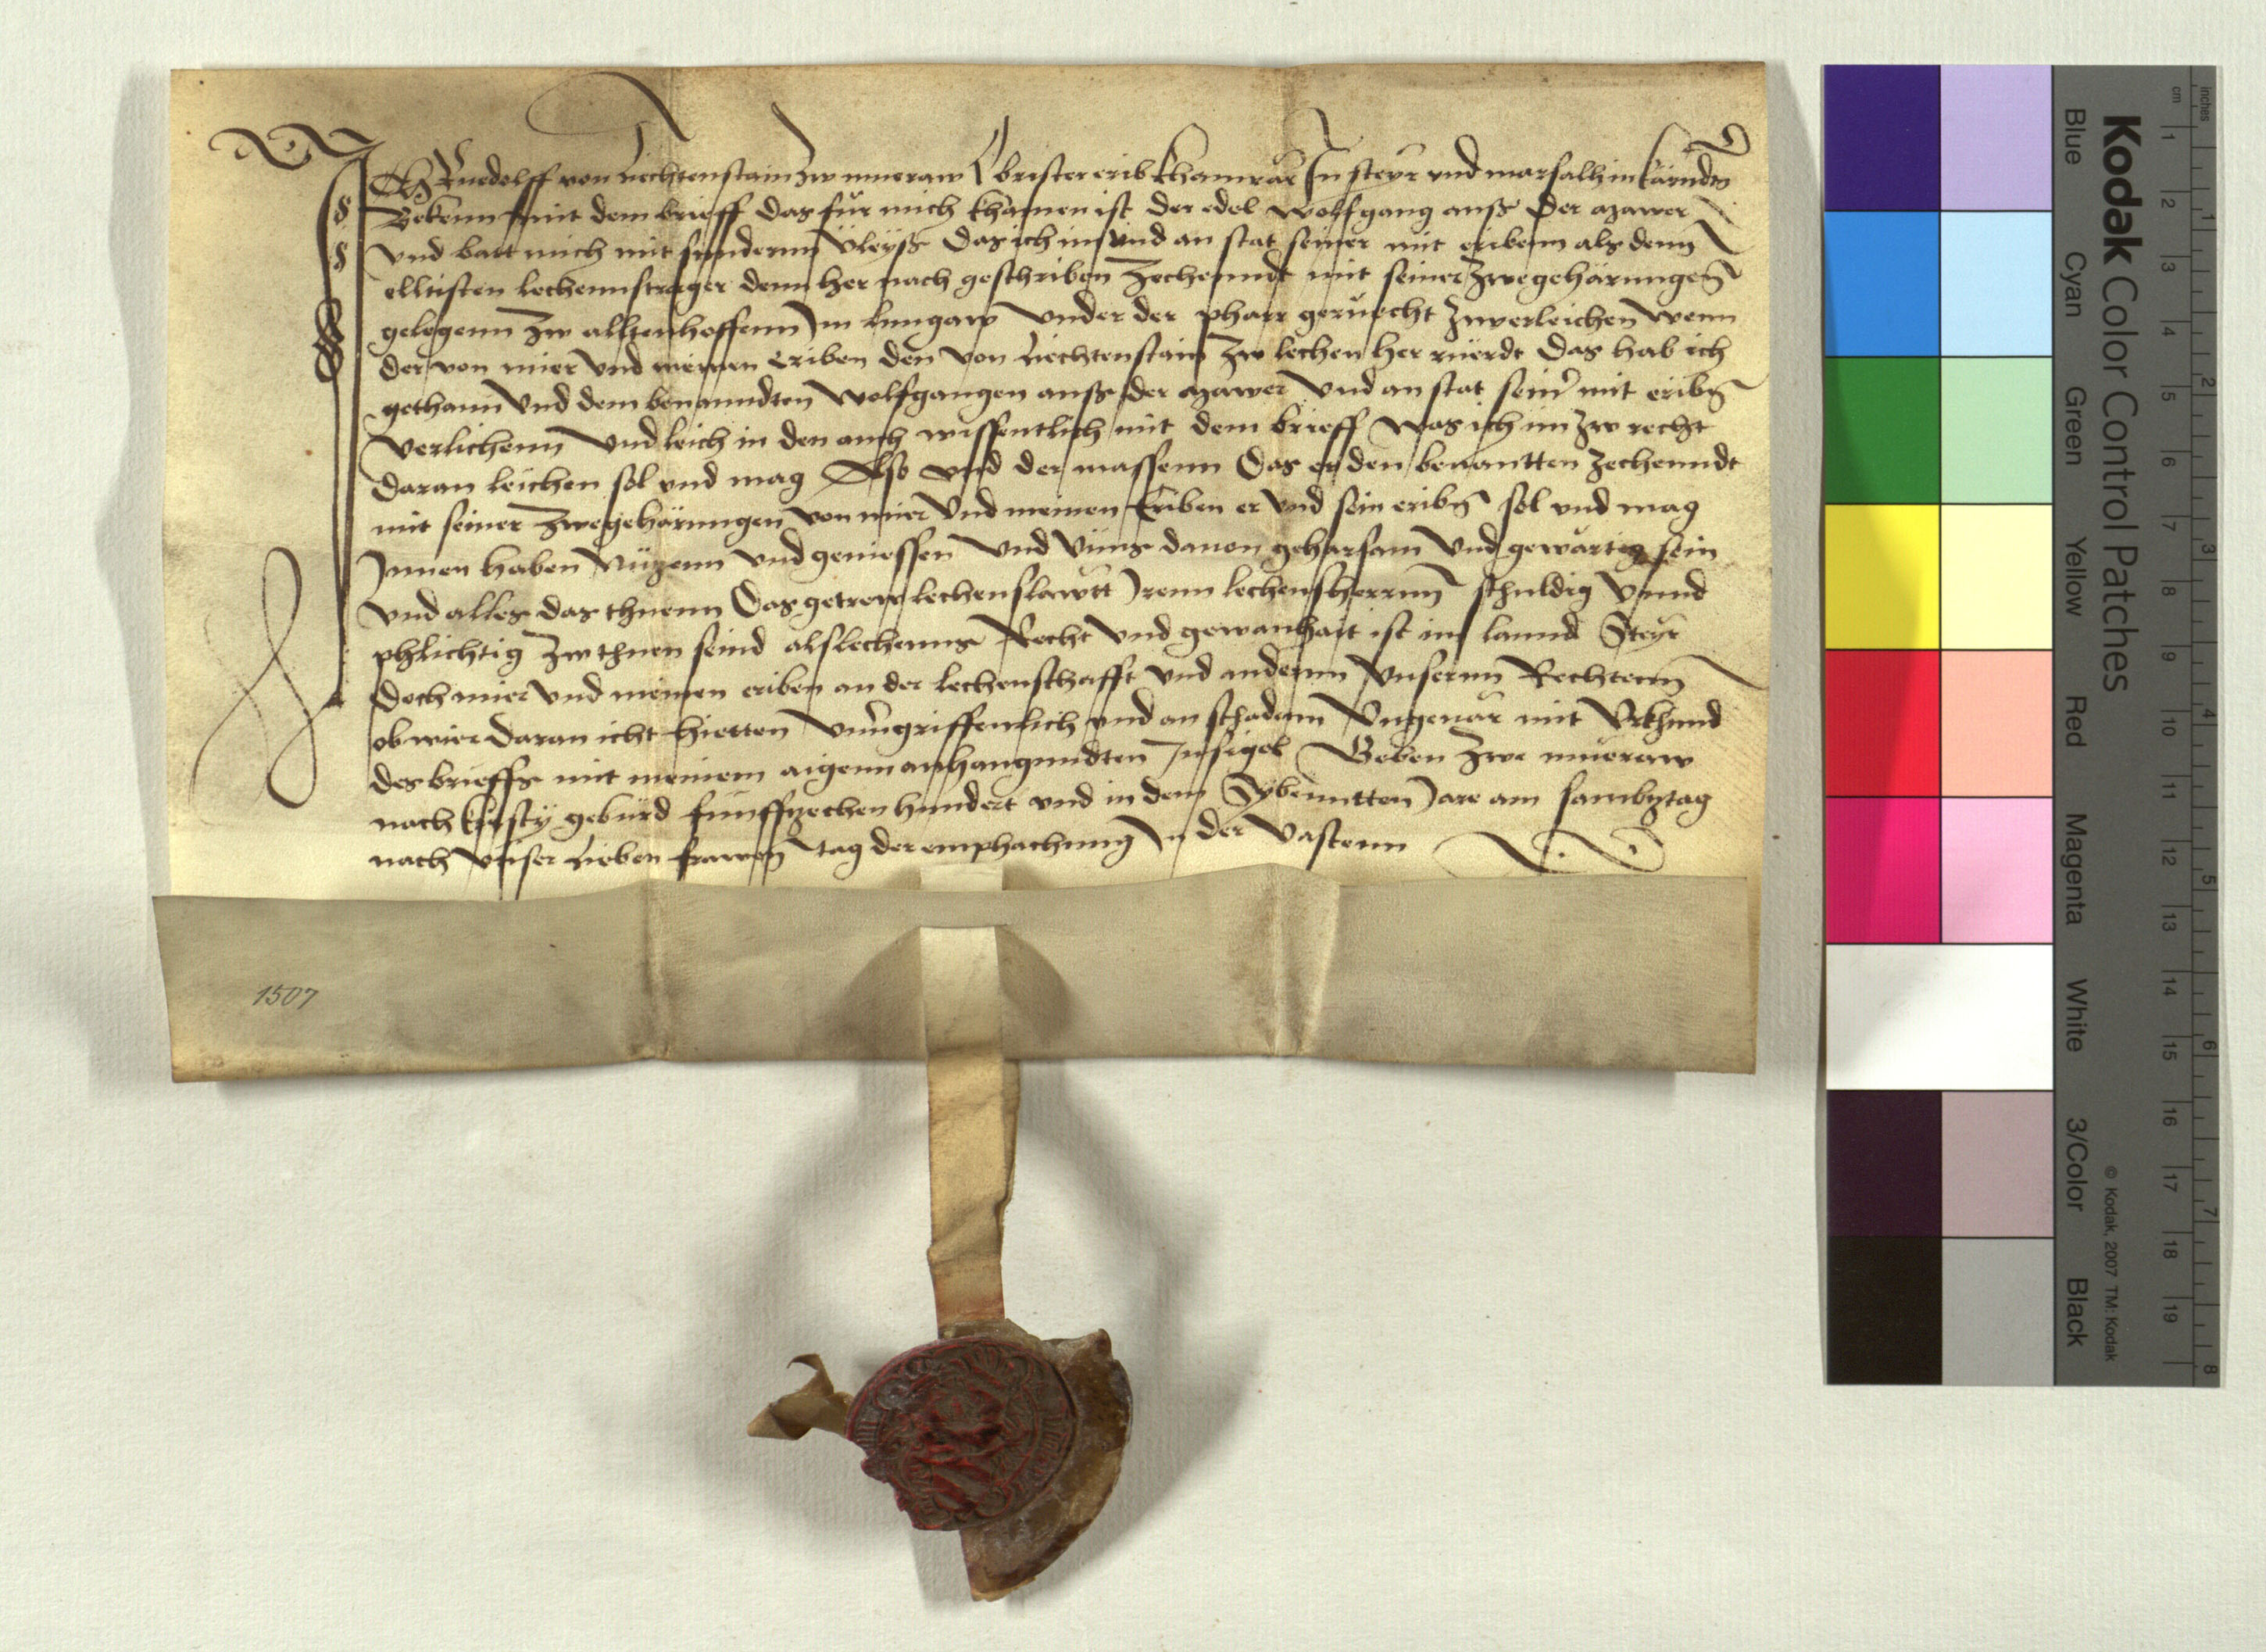 Ich Ruedolff von Liechtenstain zw mueraw Obrister erib khamrär In steyr vnd marsalh in kärndtn
Bekenn mit dem brieff das für mich khämen ist der edel wolfgang auß der azawer
vnd batt mich mit sundernn vleyß das ich im vnd an stat seiner mit eribenn als denn
elltisten lechennstrager denn her nach geschriben zechenndt mit seiner zwegehärungen
gelegenn zw alltenhoffenn Im lungaw vnder der pharr zwverleichen wenn
der von mier vnd meinen eriben den von Liechtenstain zw lechen her rüerdt das hab ich
gethann vnd dem benanndten wolfgangen auß der azawer vnd an stat seiner mit eribn
verlichenn vnd leich in den auch wissentlich mit dem brieff was ich im zw recht
daran leichen sol vnd mag Also vnd der massenn das er den benantten zechenndt
mit seiner zwegehärungen von mier vnd meinen Eriben er vnd sein eribn sol vnd mag
Innen haben Nüzenn vnd geniessen vnd vnns dauon geharsam vnd gewärtig sein
vnd alles das thuenn das getrew lechenslawtt Irenn lechensherrnn schuldig vnnd
phlichtig zw thuen seind als lechenns Recht vnd gewanhait ist im lannd Steyr
doch mier vnd meinen eriben an der lechenschafft vnd andernn vnsernn Rechtenn
ob wier daran icht hietten vnuergriffenlich vnd an schadenn Vngeuär mit Vrkhund
des brieffs mit meinem aigenn anhangundten Insigel Geben zwe mueraw
nach kristy gebürd fünffzechenhundert vnd in dem Sybenntten Jare am sambztag
nach vnser Lieben frawen tag der emphachung In der Vastenn
1507
Kodak Color Control Patches
Blue Cyan Green Yellow Red Magenta White 3/Color Black
© Kodak, 2007 TM: Kodak
inches 1 2 3 4 5 6 7 8
cm 1 2 3 4 5 6 7 8 9 10 11 12 13 14 15 16 17 18 19